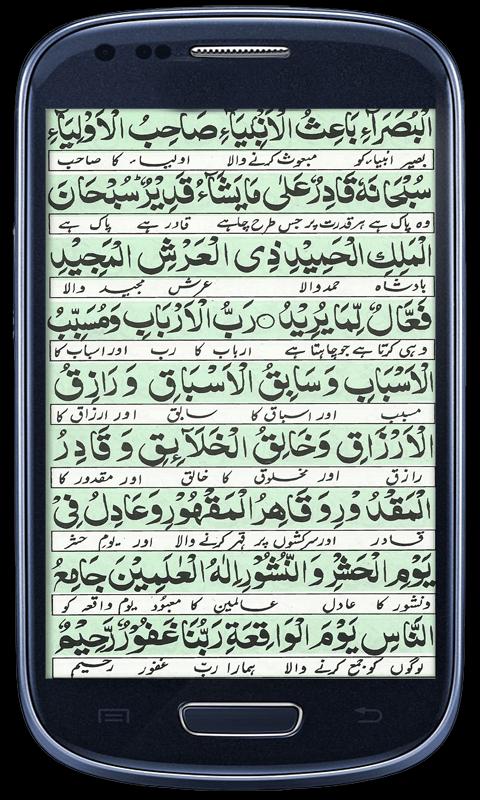 الْبُصَرَآءِ بَاعِثُ الْاَنْبِيَآءِ صَاحِبُ الْاَوْلِيَآءِ
بصیر انبیاء کو مبعوث کرنے والا اولیاء کا صاحب
سُبْحَانَهٗ قَادِرٌ عَلٰى مَا يَشَآءُ قَدِيْرٌ سُبْحَانَ
وہ پاک ہے ہر قدرت پر جس طرح چاہے قادر ہے پاک ہے
الْمَلِكِ الْحَمِيْدِ ذِى الْعَرْشِ الْمَجِيْدِ
بادشاہ حمد والا عرش مجید والا
فَعَّالٌ لِّمَا يُرِيْدُ ○ رَبُّ الْاَرْبَابِ وَمُسَبِّبُ
وہی کرتا ہے جو چاہتا ہے ارباب کا رب اور اسباب کا
الْاَسْبَابِ وَسَابِقُ الْاَسْبَاقِ وَرَازِقُ
مسبب اور اسباق کا سابق اور ارزاق کا
الْاَرْزَاقِ وَخَالِقُ الْخَلَآئِقِ وَقَادِرُ
رازق اور مخلوق کا خالق اور مقدور کا
الْمَقْدُوْرِ وَقَاهِرُ الْمَقْهُوْرِ وَعَادِلٌ فِىْ
قادر اور سرکشوں پر قہر کرنے والا اور یوم حشر
يَوْمِ الْحَشْرِ وَالنُّشُوْرِ اِلٰهُ الْعٰلَمِيْنَ جَامِعُ
و نشور کا عادل عالمین کا معبود یوم واقعہ کو
النَّاسِ يَوْمَ الْوَاقِعَةِ رَبُّنَا غَفُوْرٌ رَّحِيْمٌ
لوگوں کو جمع کرنے والا ہمارا ربّ غفور رحیم